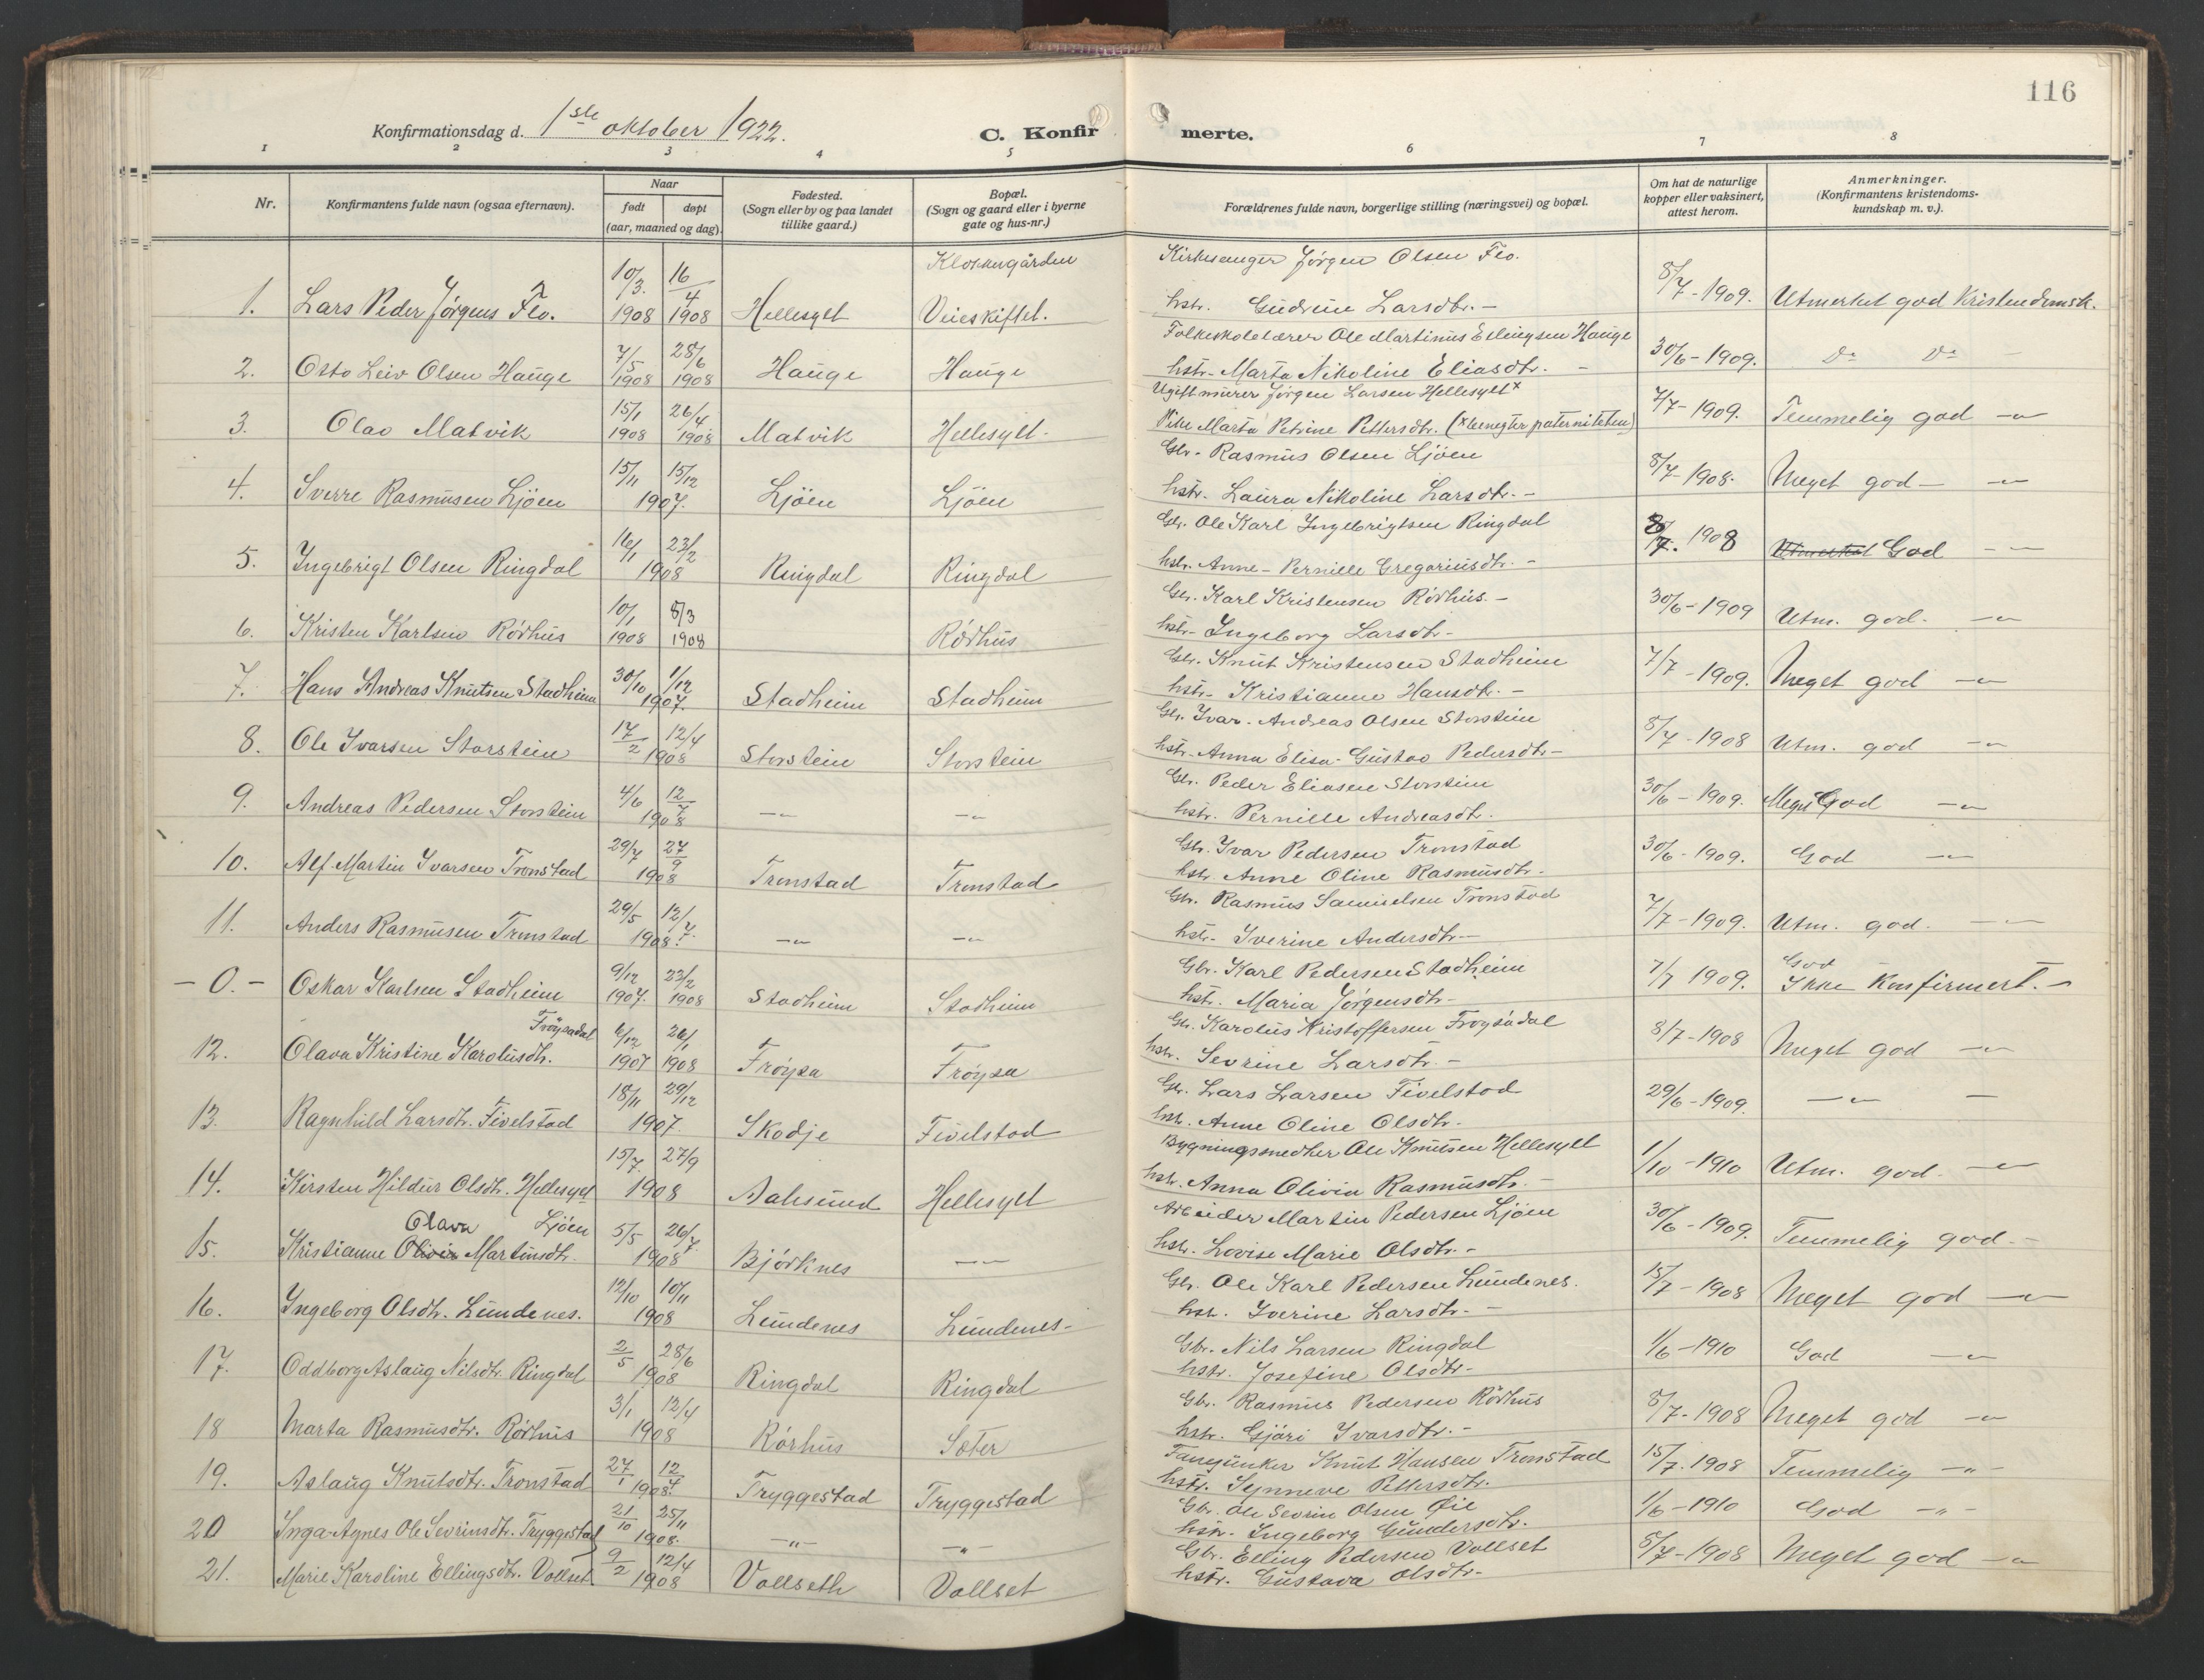 116
Konfirmationsdag d. 1ste oktober 1922.
C. Konfirmerte.
1 2 3 4 5 6 7 8
Nr.
Konfirmantens fulde navn (ogsaa efternavn).
Naar
født
døpt
(aar, maaned og dag).
Fødested.
(Sogn eller by og paa landet
tillike gaard.)
Bopæl.
(Sogn og gaard eller i byerne
gate og hus-nr.)
Forældrenes fulde navn, borgerlige stilling (næringsvei) og bopæl.
Om hat de naturlige
kopper eller vaksinert,
attest herom.
Anmerkninger.
(Konfirmantens kristendoms-
kundskap m. v.).
Klokkergården
Kirkesanger Jørgen Olsen Flo.
1. Lars Peder Jørgens Flo. 10/3. 1908 16/4 1908 Hellesylt Vueskiftet. hstr. Gudrun Larsdtr. - 8/7-1909. Utmerket god Kristendomsk.
Folkeskolelærer Ole Martinus Ellingsen Hauge
2. Otto Leiv Olsen Hauge 7/5 1908 28/6 1908 Hauge Hauge hstr. Marta Nikoline Eliasdtr. - 30/6-1909. Do Do -
Ugift murer Jørgen Larsen Hellesylt x
3. Olav Matvik 15/1 1908 26/4 1908 Matvik Hellesylt. Pike Marta Petrine Pettersdtr. (x benegter paterniteten) 7/7-1909. Temmelig god -"-
Gbr. Rasmus Olsen Ljöen
4. Sverre Rasmusen Ljöen 15/11 15/12 1907. Ljöen Ljöen hstr. Laura Nikoline Larsdtr. - 8/7-1908. Meget god -"-
Gbr. Ole Karl Ingebrigtsen Ringdal
5. Ingebrigt Olsen Ringdal 16/1 23/2 1908 Ringdal Ringdal hstr. Anne-Pernille Gregoriusdtr. - 8/7. 1908 Utmerket God -"-
Gbr. Karl Kristensen Rödhus. -
6. Kristen Karlsen Rödhus 10/1 1908 8/3 1908 Rödhus hstr. Ingeborg Larsdtr. 30/6-1909 Utm. god. -"-
Gbr. Knut Kristensen Stadheim
7. Hans Andreas Knutsen Stadheim 30/10 1/12 1907. Stadheim Stadheim hstr. Kristianne Hansdtr. - 7/7-1909. Meget god -"-
Gbr. Ivar Andreas Olsen Storstein
8. Ole Ivarsen Storstein 17/2 12/4 1908 Storstein Storstein hstr. Anna Elisa Gustav Pedersdtr. - 8/7-1908 Utm. god -"-
Gbr. Peder Eliasen Storstein
9. Andreas Pedersen Storstein 4/6 12/7 1908 -"- -"- hstr. Pernille Andreasdtr. 30/6-1909. Meget God -"-
Gbr. Ivar Pedersen Tronstad
10. Alf Martin Ivarsen Tronstad 29/7 27/9 1908 Tronstad Tronstad hstr. Anne Oline Rasmusdtr. 30/6-1909. God -"-
Gbr. Rasmus Samuelsen Tronstad
11. Anders Rasmusen Tronstad 29/5 12/7 1908. -"- -"- hstr. Iverine Andersdtr. - 7/7-1909. Utm. god. -"-
Gbr. Karl Pedersen Stadheim God
-0.- Oskar Karlsen Stadheim 9/12 1907. 23/2 1908 Stadheim Stadheim hstr. Maria Jörgensdtr. - 7/7 1909. Ikke Konfirmert. -
Fröysadal
Gbr. Karolus Kristoffersen Fröysadal
12. Olava Kristine Karolusdtr. 6/12 1907 26/1 1908 Fröysa Fröysa hstr. Sevrine Larsdtr. - 8/7-1908 Meget god -"-
Gbr. Lars Larsen Fivelstad
13. Ragnhild Larsdtr. Fivelstad 18/11 29/12 1907. Skodje Fivelstad hstr. Anne Oline Olsdtr. 29/6-1909. -"- -
Bygningssnedker Ole Knutsen Hellesylt
14. Kirsten Hildur Olsdtr. Hellesylt 15/7. 27/9 1908 Aalesund Hellesylt hstr. Anna Olivia Rasmusdtr. - 1/10-1910 Utm. god. -"-
Olava Ljöen
Arbeider Martin Pedersen Ljöen
15. Kristianne Olivia Martinsdtr. 5/5 26/7 1908 Björknes -"- hstr. Lovise Marie Olsdtr. - 30/6-1909. Temmelig god. -
Gbr. Ole Karl Pedersen Lundenes.
16. Ingeborg Olsdtr. Lundenes. 12/10 10/11 1908 Lundenes Lundenes - hstr. Iverine Larsdtr. - 15/7-1908 Meget god -"-
Gbr. Nils Larsen Ringdal
17. Oddborg Aslaug Nilsdtr. Ringdal 2/5 28/6 1908 Ringdal Ringdal hstr. Josefine Olsdtr. - 1/6-1910 God -"-
Gbr. Rasmus Pedersen Rödhus
18 Marta Rasmusdtr. Rörhus 3/1 12/4 1908 Rörhus Sæter hstr. Gjöri Ivarsdtr. - 8/7-1908 Meget god -"-
Fanejunker Knut Hansen Tronstad
19. Aslaug Knutsdtr. Tronstad 27/1 12/4 1908. Tryggestad Tryggestad hstr. Synneve Pettersdtr. 15/7. 1908 Temmelig -"-
Gbr. Ole Sevrin Olsen Øie
20 Inga Agnes Ole Sevrinsdtr. Tryggestad 21/10 25/11 1908. -"- -"- hstr. Ingeborg Gundersdtr. 1/6-1910 God -"-
Gbr. Elling Pedersen Vollset
21. Marie Karoline Ellingsdtr. Vollset 9/2 12/4 1908 Vollseth Vollset hstr. Gustava Olsdtr. - 8/7-1908 Meget god -"-